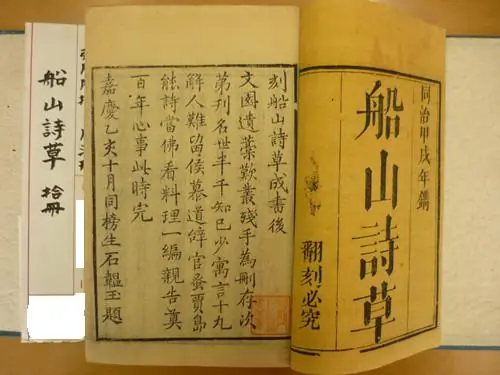 同治甲戌年鐫
船山詩草
翻刻必究
刻船山詩草成書後
文園遺藁歎叢殘手為刪存次
第刊名世半千知己少寓言十九
解人難留侯慕道辭官蚤賈島
能詩當佛看料理一編親告奠
百年心事此時完
嘉慶乙亥十月同榜生石韞玉題
船山詩草 拾冊